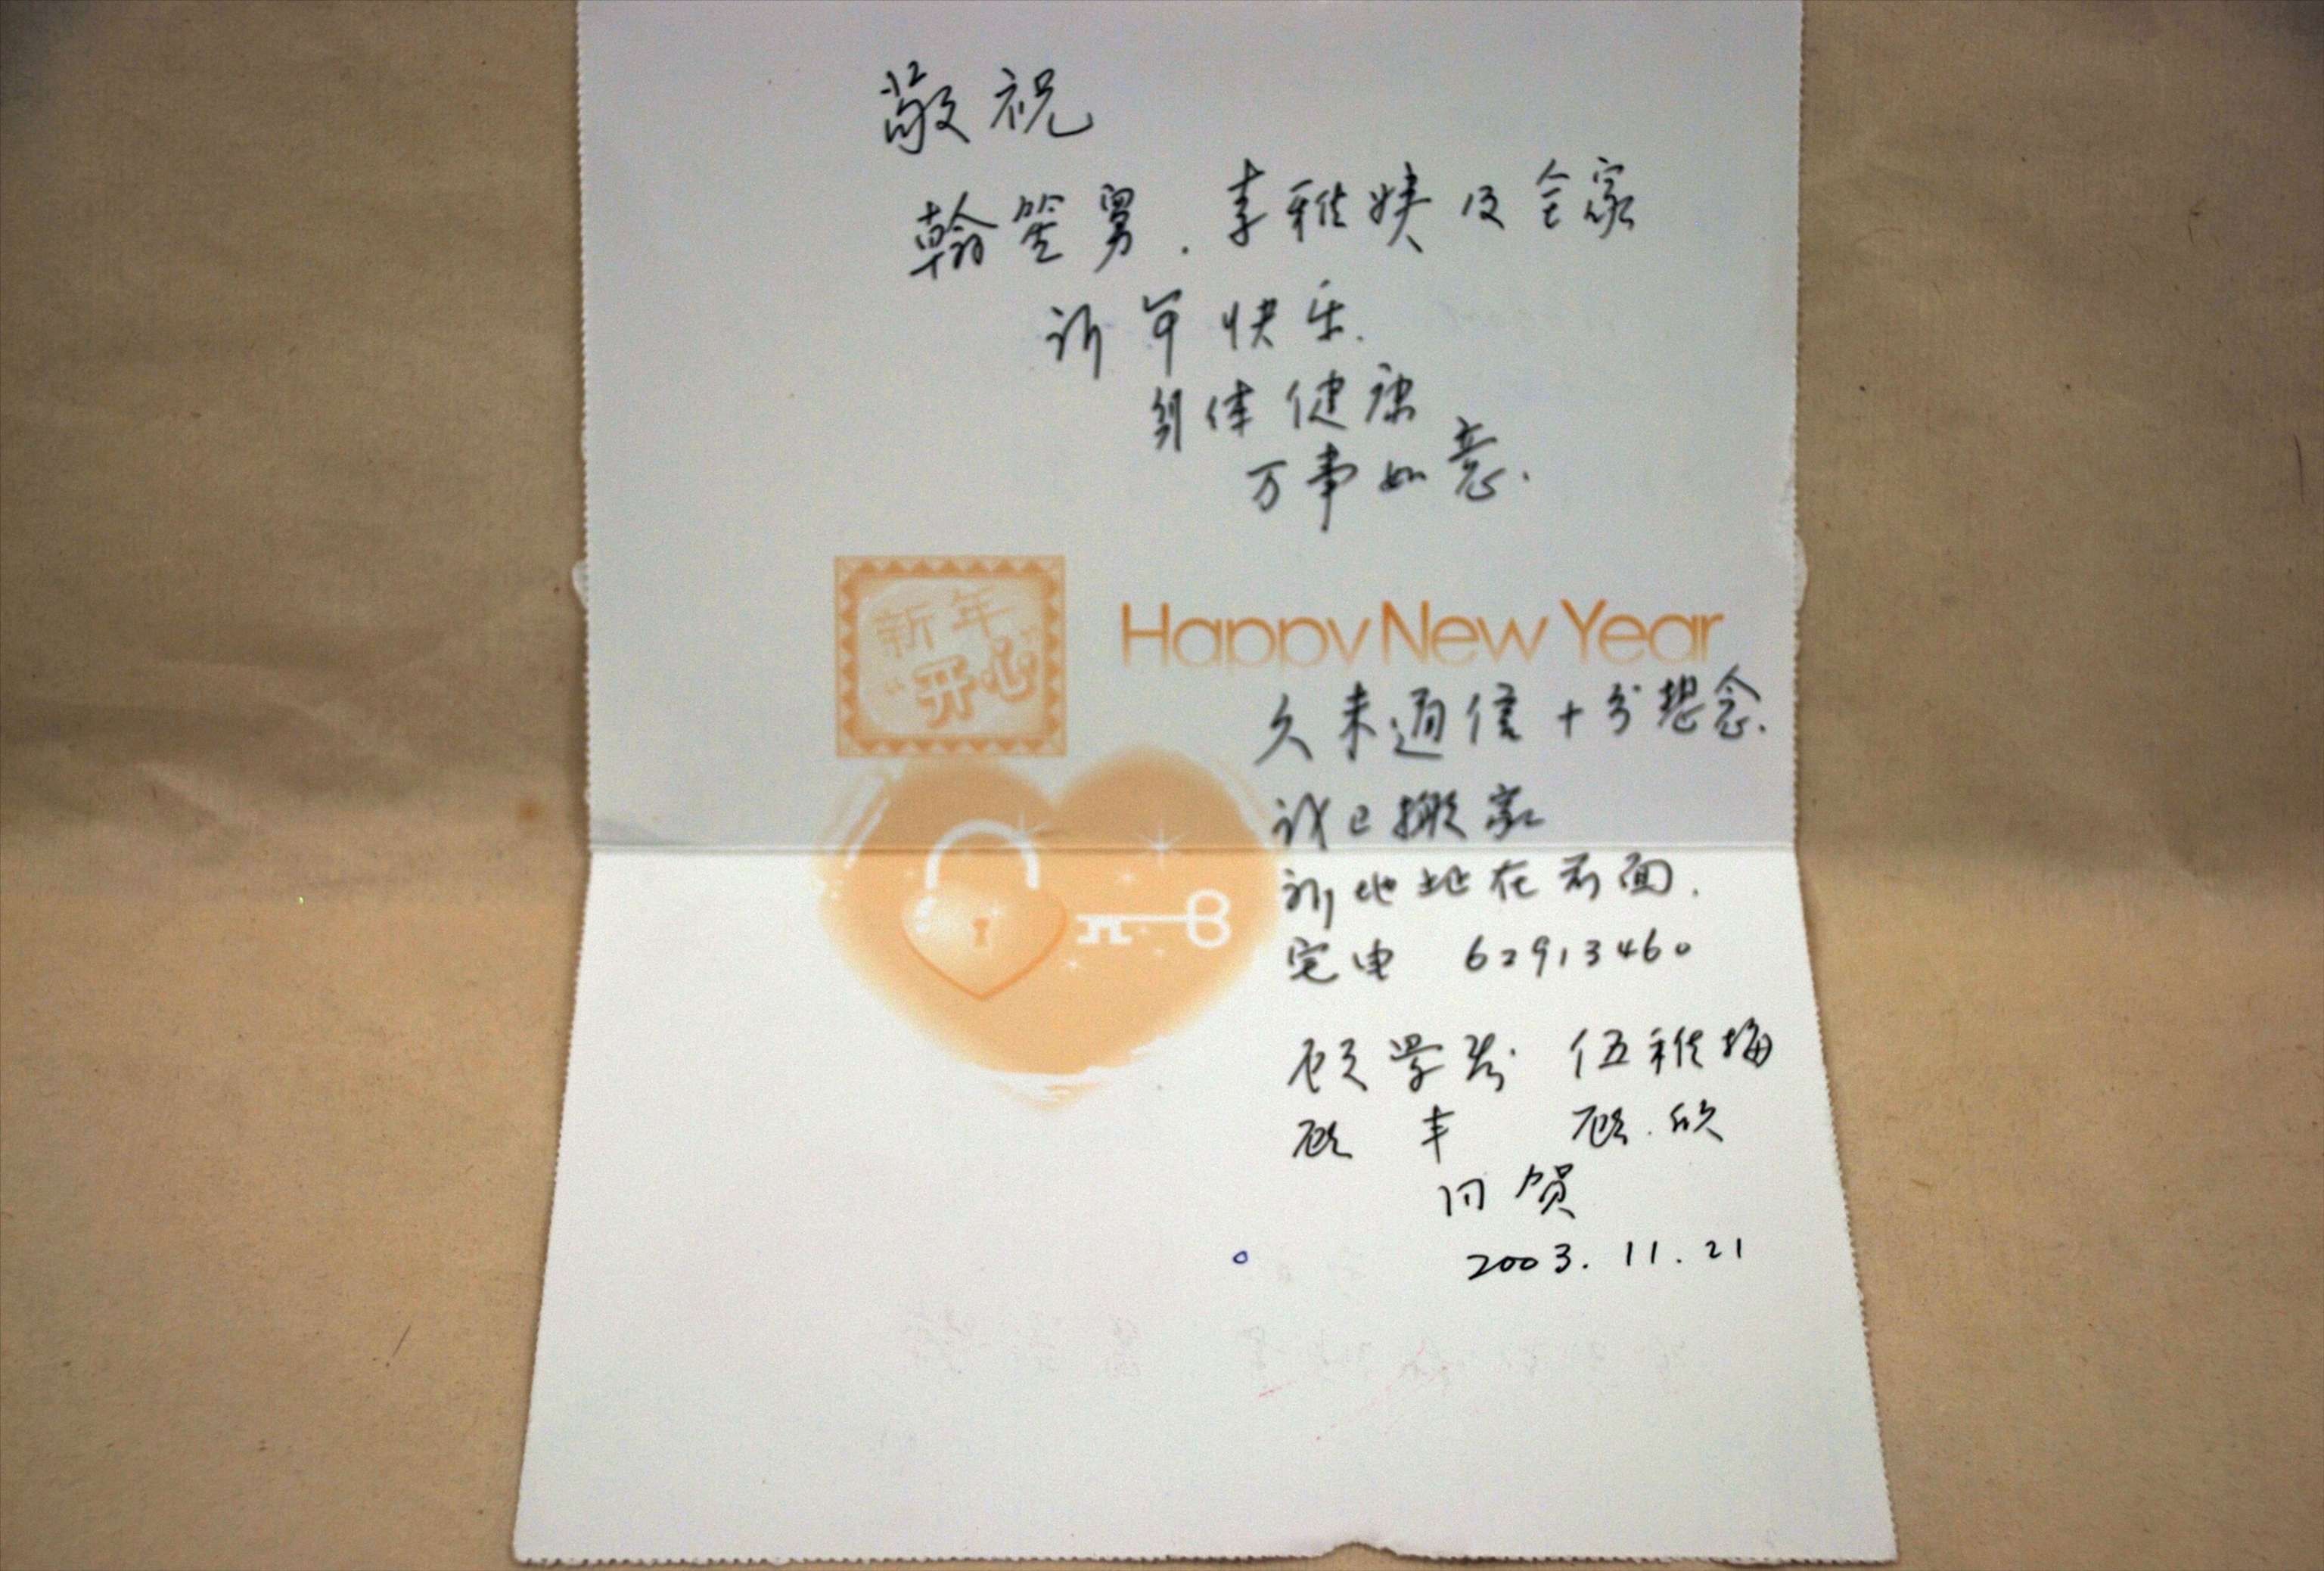 敬祝
翰笙舅．李雅姨及全家
新年快乐．
身体健康
万事如意．
新年
“开心”
Happy New Year
久未通信十分想念．
我已搬家
新地址在前面．
宅电 62913460
顾学 伍雅梅
顾丰 顾欣
同贺
2003.11.21